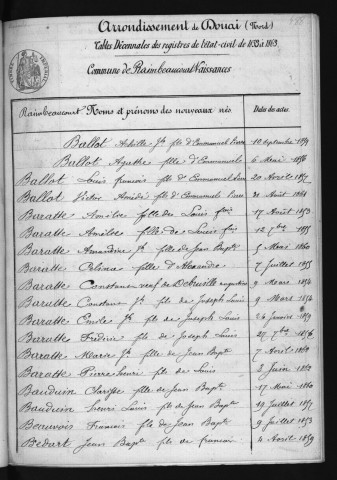 Arrondissement de Douai (Nord)
Tables Décennales des registres de l'état-civil de 1853 à 1863
Commune de Raimbeaucourt Naissances
Raimbeaucourt Noms et prénoms des nouveaux nés Dates des actes
Ballot Achille Jh fils d'Emmanuel Pierre 10 Septembre
Ballot Agathe fille d'Emmanuel 6 Mai 1856
Ballot Louis francois fils d'Emmanuel 20 Avril
Ballot Victor Amédé fils d'Emmanuel Pierre 31 Aout 1861
Baratte Amélie fille de Louis fois 17 Aout 1853
Baratte Amélie fille de Louis fois 12 7bre 1855
Baratte Amandine Jh fille de Jean Bapte 5 Mai 1860
Baratte Célina fille d'Alexandre 7 Juillet 1855
Baratte Constance 9 Mars 1854
Baratte Constant Jh fils de Joseph Louis 9 Mars 1854
Baratte Emile Jh fils de Joseph Louis 24 Janvier 1859
Baratte Frédéric fils de Joseph Louis 27 7bre 1856
Baratte Marie Jh fille de Jean Bapte 7 Avril
Baratte Pierre henri fils de Louis 2 Juin
Bauduin Clarisse fille de Jean Bapte 17 Mai 1860
Bauduin henri Louis fils de Jean Bapte 19 Juillet 1857
Beauvois Francois fils de Jean Bapte 9 Juillet 1853
Bédart Jean Bapte fils de francois 4 Avril 1859